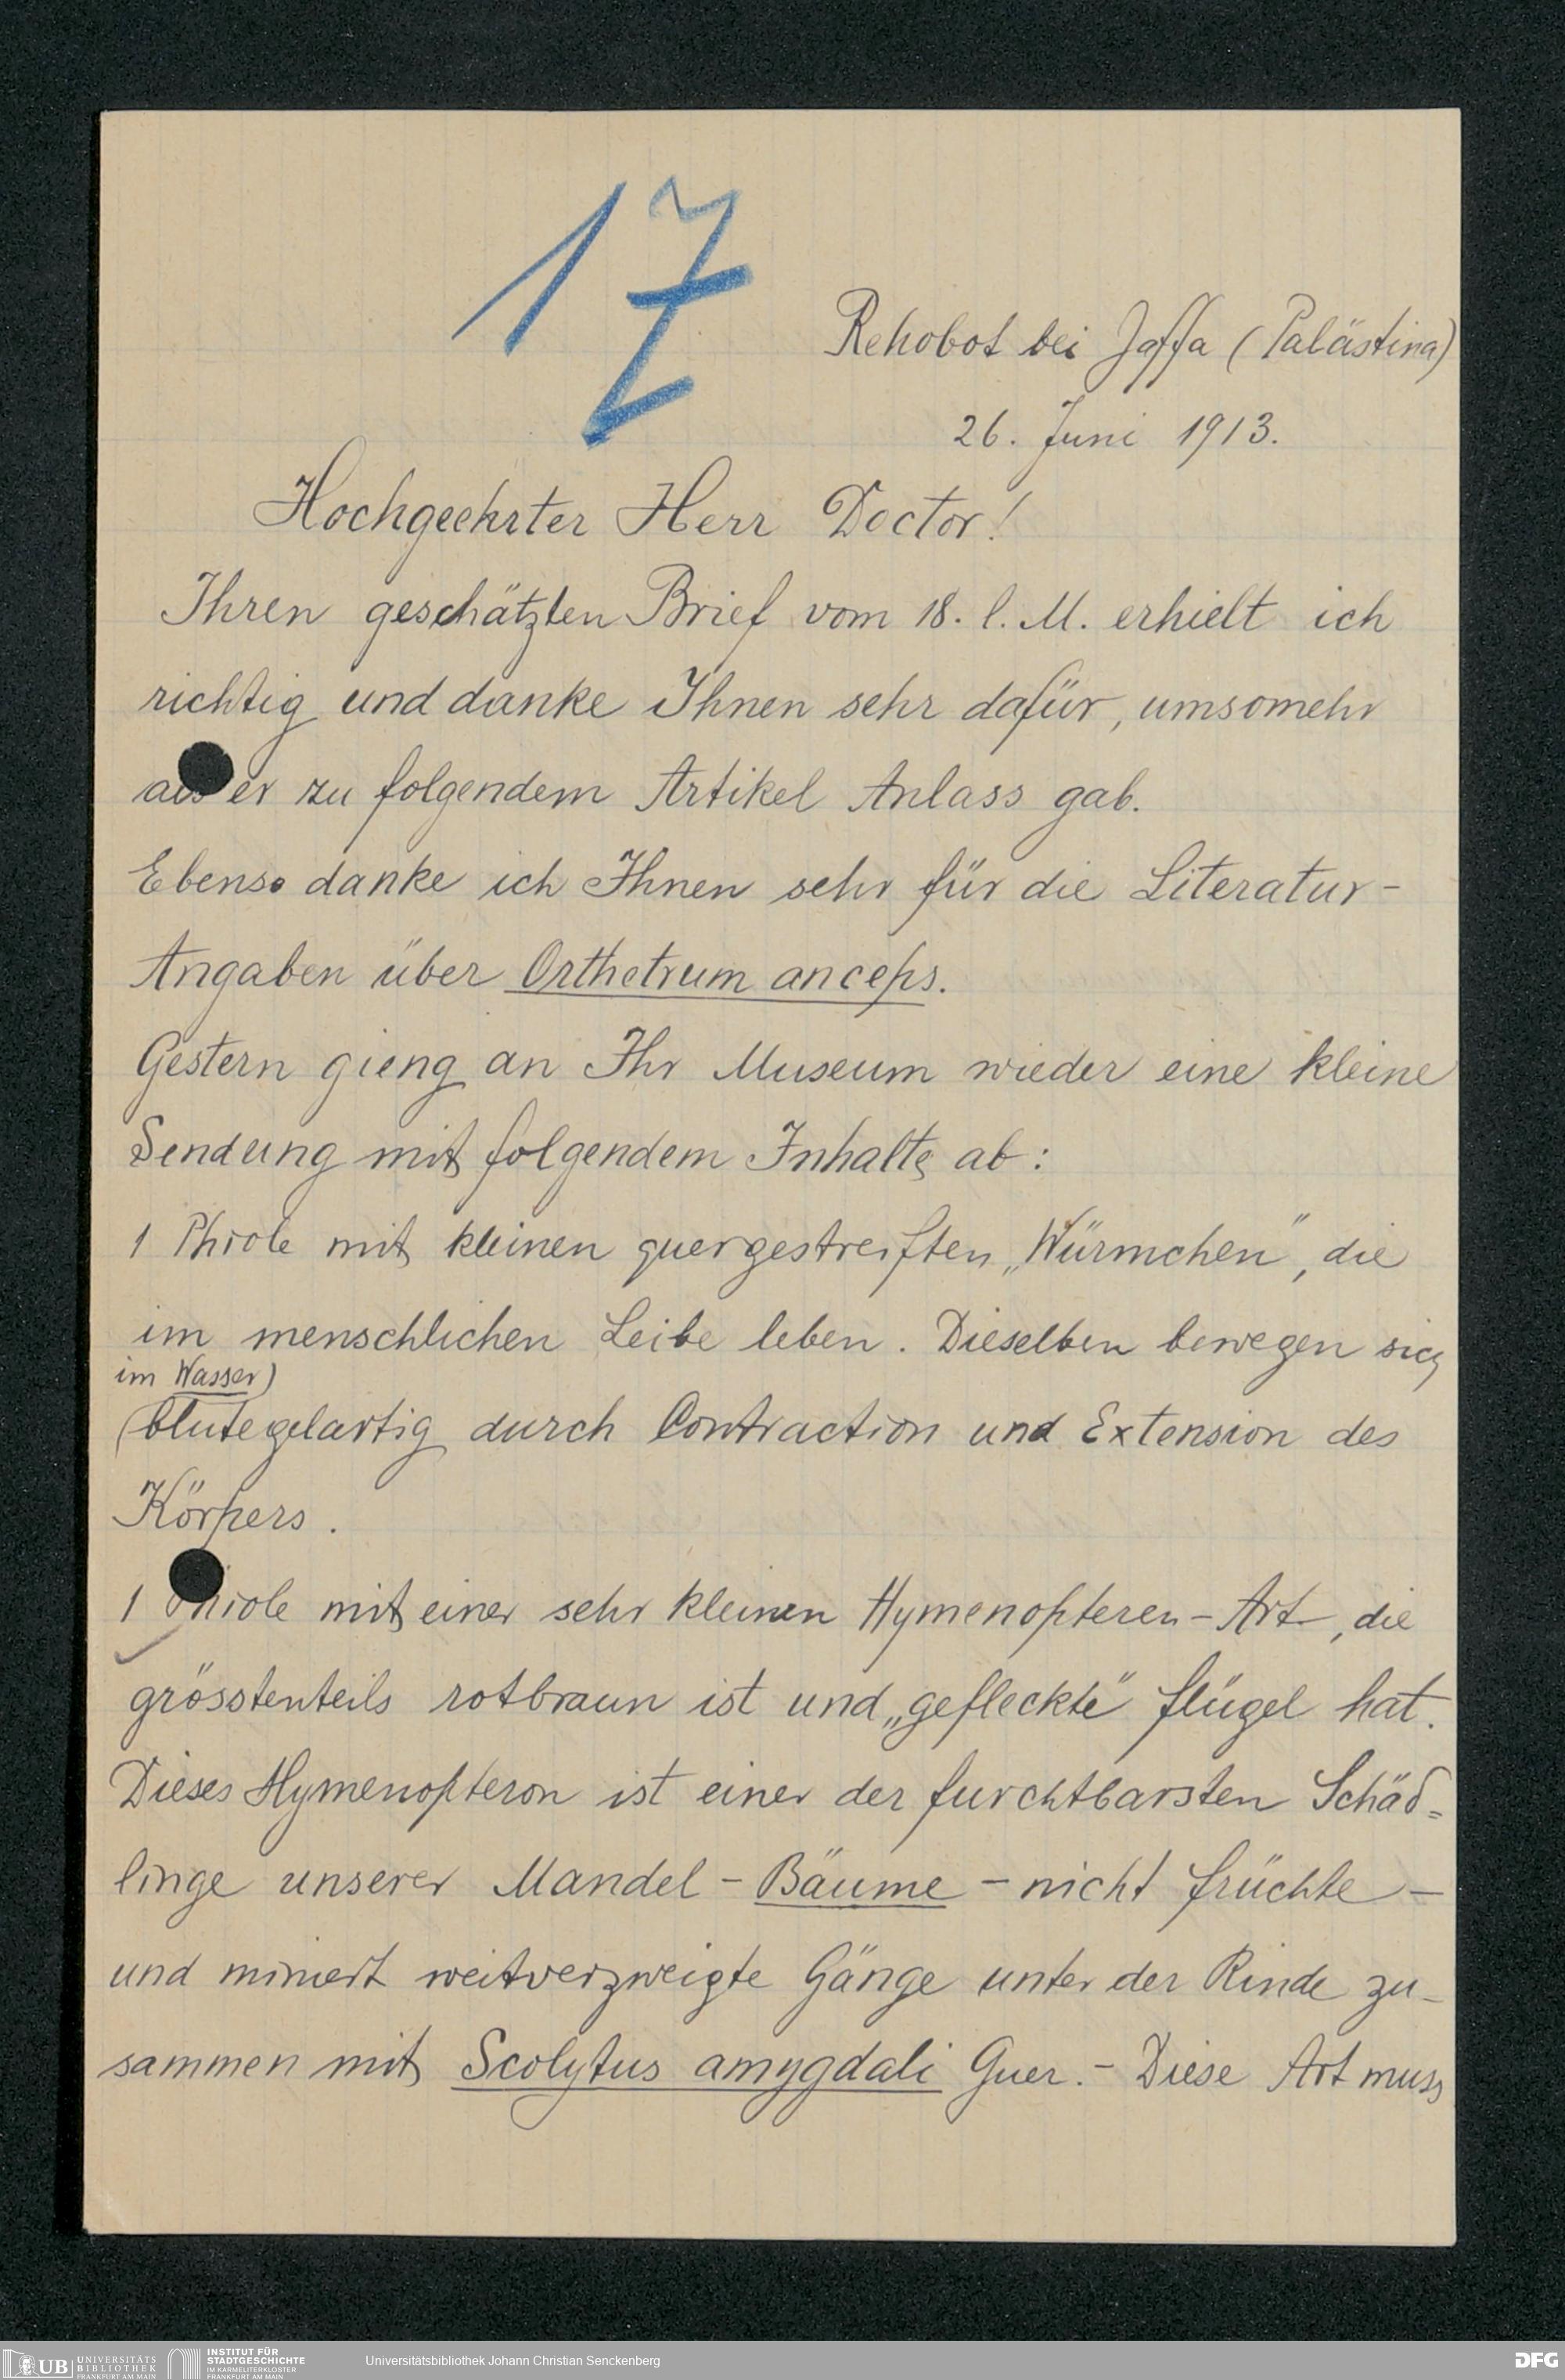 17
Rehobot bei Jaffa (Palästina)
26. Juni 1913.
Hochgeehrter Herr Doctor!
Ihren geschätzten Brief vom 18. l. M. erhielt ich
richtig und danke Ihnen sehr dafür, umsomehr
als er zu folgendem Artikel Anlass gab.
Ebenso danke ich Ihnen sehr für die Literatur-
Angaben über Orthetrum anceps.
Gestern gieng an Ihr Museum wieder eine kleine
Sendung mit folgendem Inhalte ab:
1 Phiole mit kleinen quergestreiften „Würmchen", die
im menschlichen Leibe leben. Dieselben bewegen sich
im Wasser)
(blutegelartig durch Contraction und Extension des
Körpers.
1 Phiole mit einer sehr kleinen Hymenopteren-Art, die
grösstenteils rotbraun ist und „gefleckte" Flügel hat.
Dieses Hymenopteron ist einer der furchtbarsten Schäd=
linge unserer Mandel-Bäume - nicht Früchte -
und miniert weitverzweigte Gänge unter der Rinde zu-
sammen mit Scolytus amygdali Guer. - Diese Art muss
UB UNIVERSITÄTS
BIBLIOTHEK
FRANKFURT AM MAIN
INSTITUT FÜR
STADTGESCHICHTE
IM KARMELITERKLOSTER
FRANKFURT AM MAIN
Universitätsbibliothek Johann Christian Senckenberg
DFG